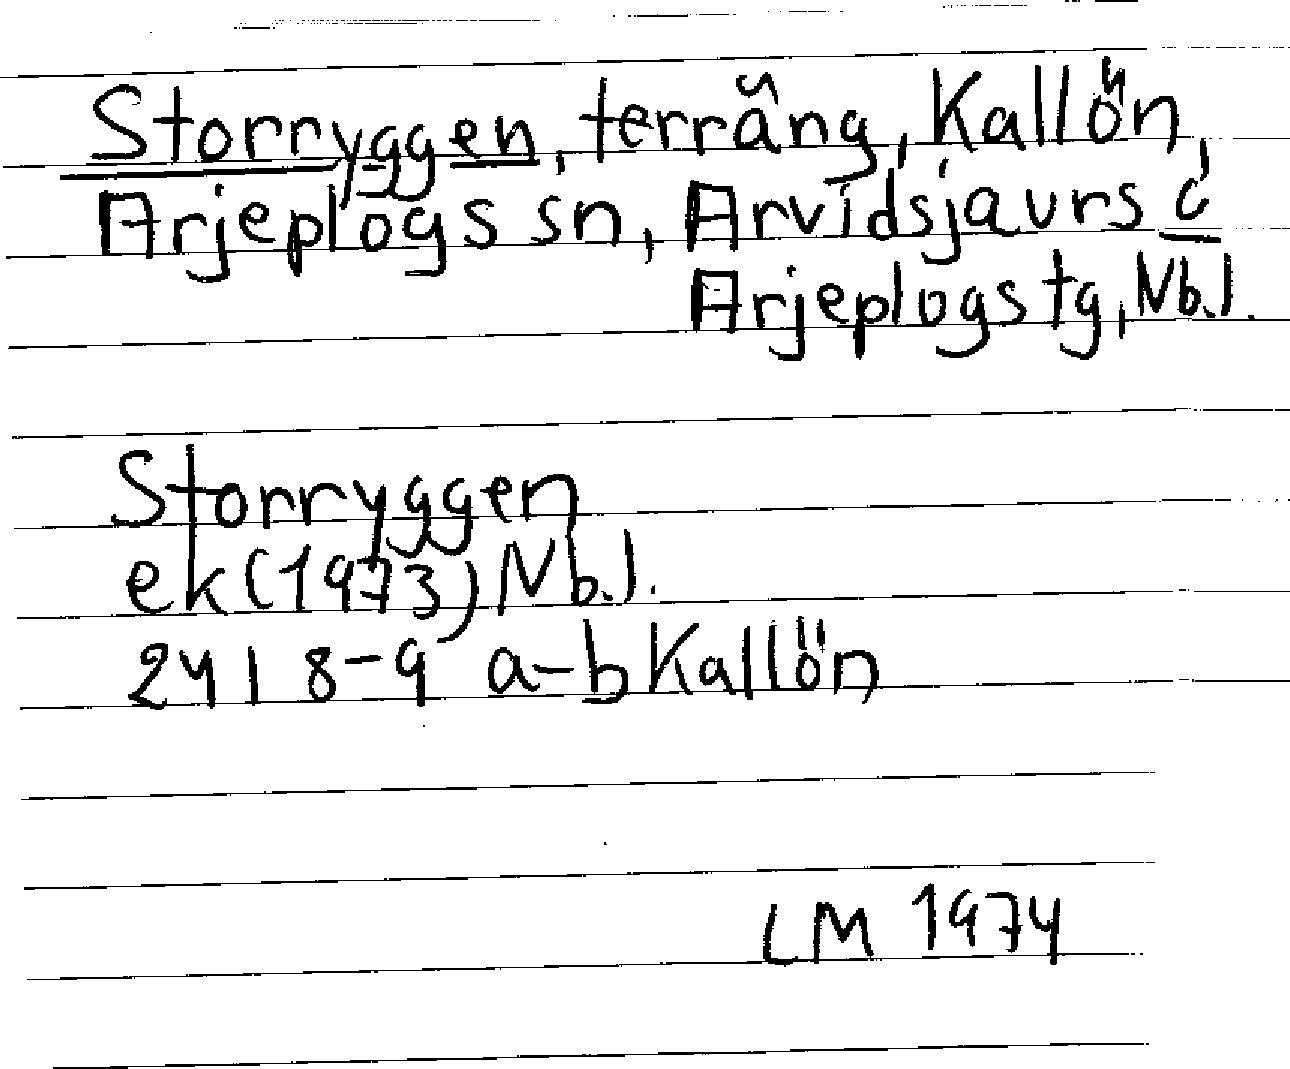 Storryggen, terräng, Kallön,
Arjeplogs sn, Arvidsjaurs o
Arjeplogs tg, Nb.l.
Storryggen
ek (1973) Nb.l.
24 I 8-9 a-b Kallön
LM 1974